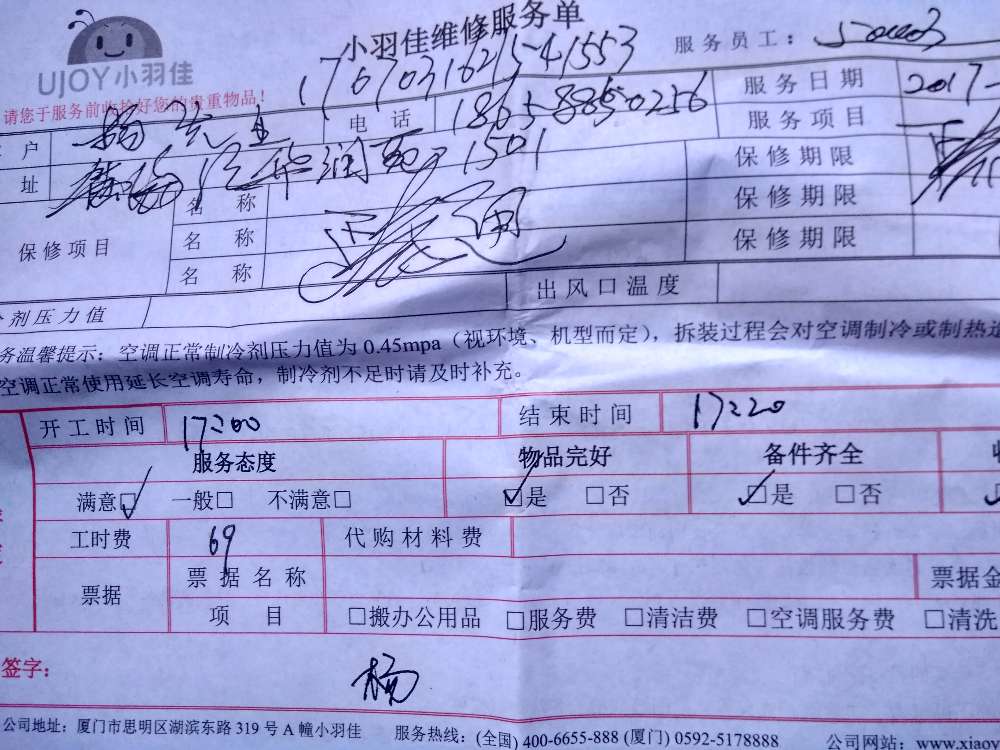 UJOY小羽佳
小羽佳维修服务单
服务员工：
请您于服务前收捡好您的贵重物品！
1767031621541553
户 杨先生 电 话 186-5885-0256 服务日期 2017-
服务项目
址 华润 1501 保修期限
保修项目 名 称 保修期限
名 称 保修期限
名 称
剂压力值 出风口温度
务温馨提示：空调正常制冷剂压力值为 0.45mpa（视环境、机型而定），拆装过程会对空调制冷或制热
空调正常使用延长空调寿命，制冷剂不足时请及时补充。
开工时间 17:00 结束时间 17:20
服务态度 物品完好 备件齐全
满意□ 一般□ 不满意□ □是 □否 □是 □否
工时费 69 代购材料费
票据 票据名称 票据金
项 目 □搬办公用品 □服务费 □清洁费 □空调服务费 □清洗
签字： 杨
公司地址：厦门市思明区湖滨东路 319 号 A 幢小羽佳 服务热线：(全国) 400-6655-888 (厦门) 0592-5178888 公司网站：www.xiaoy